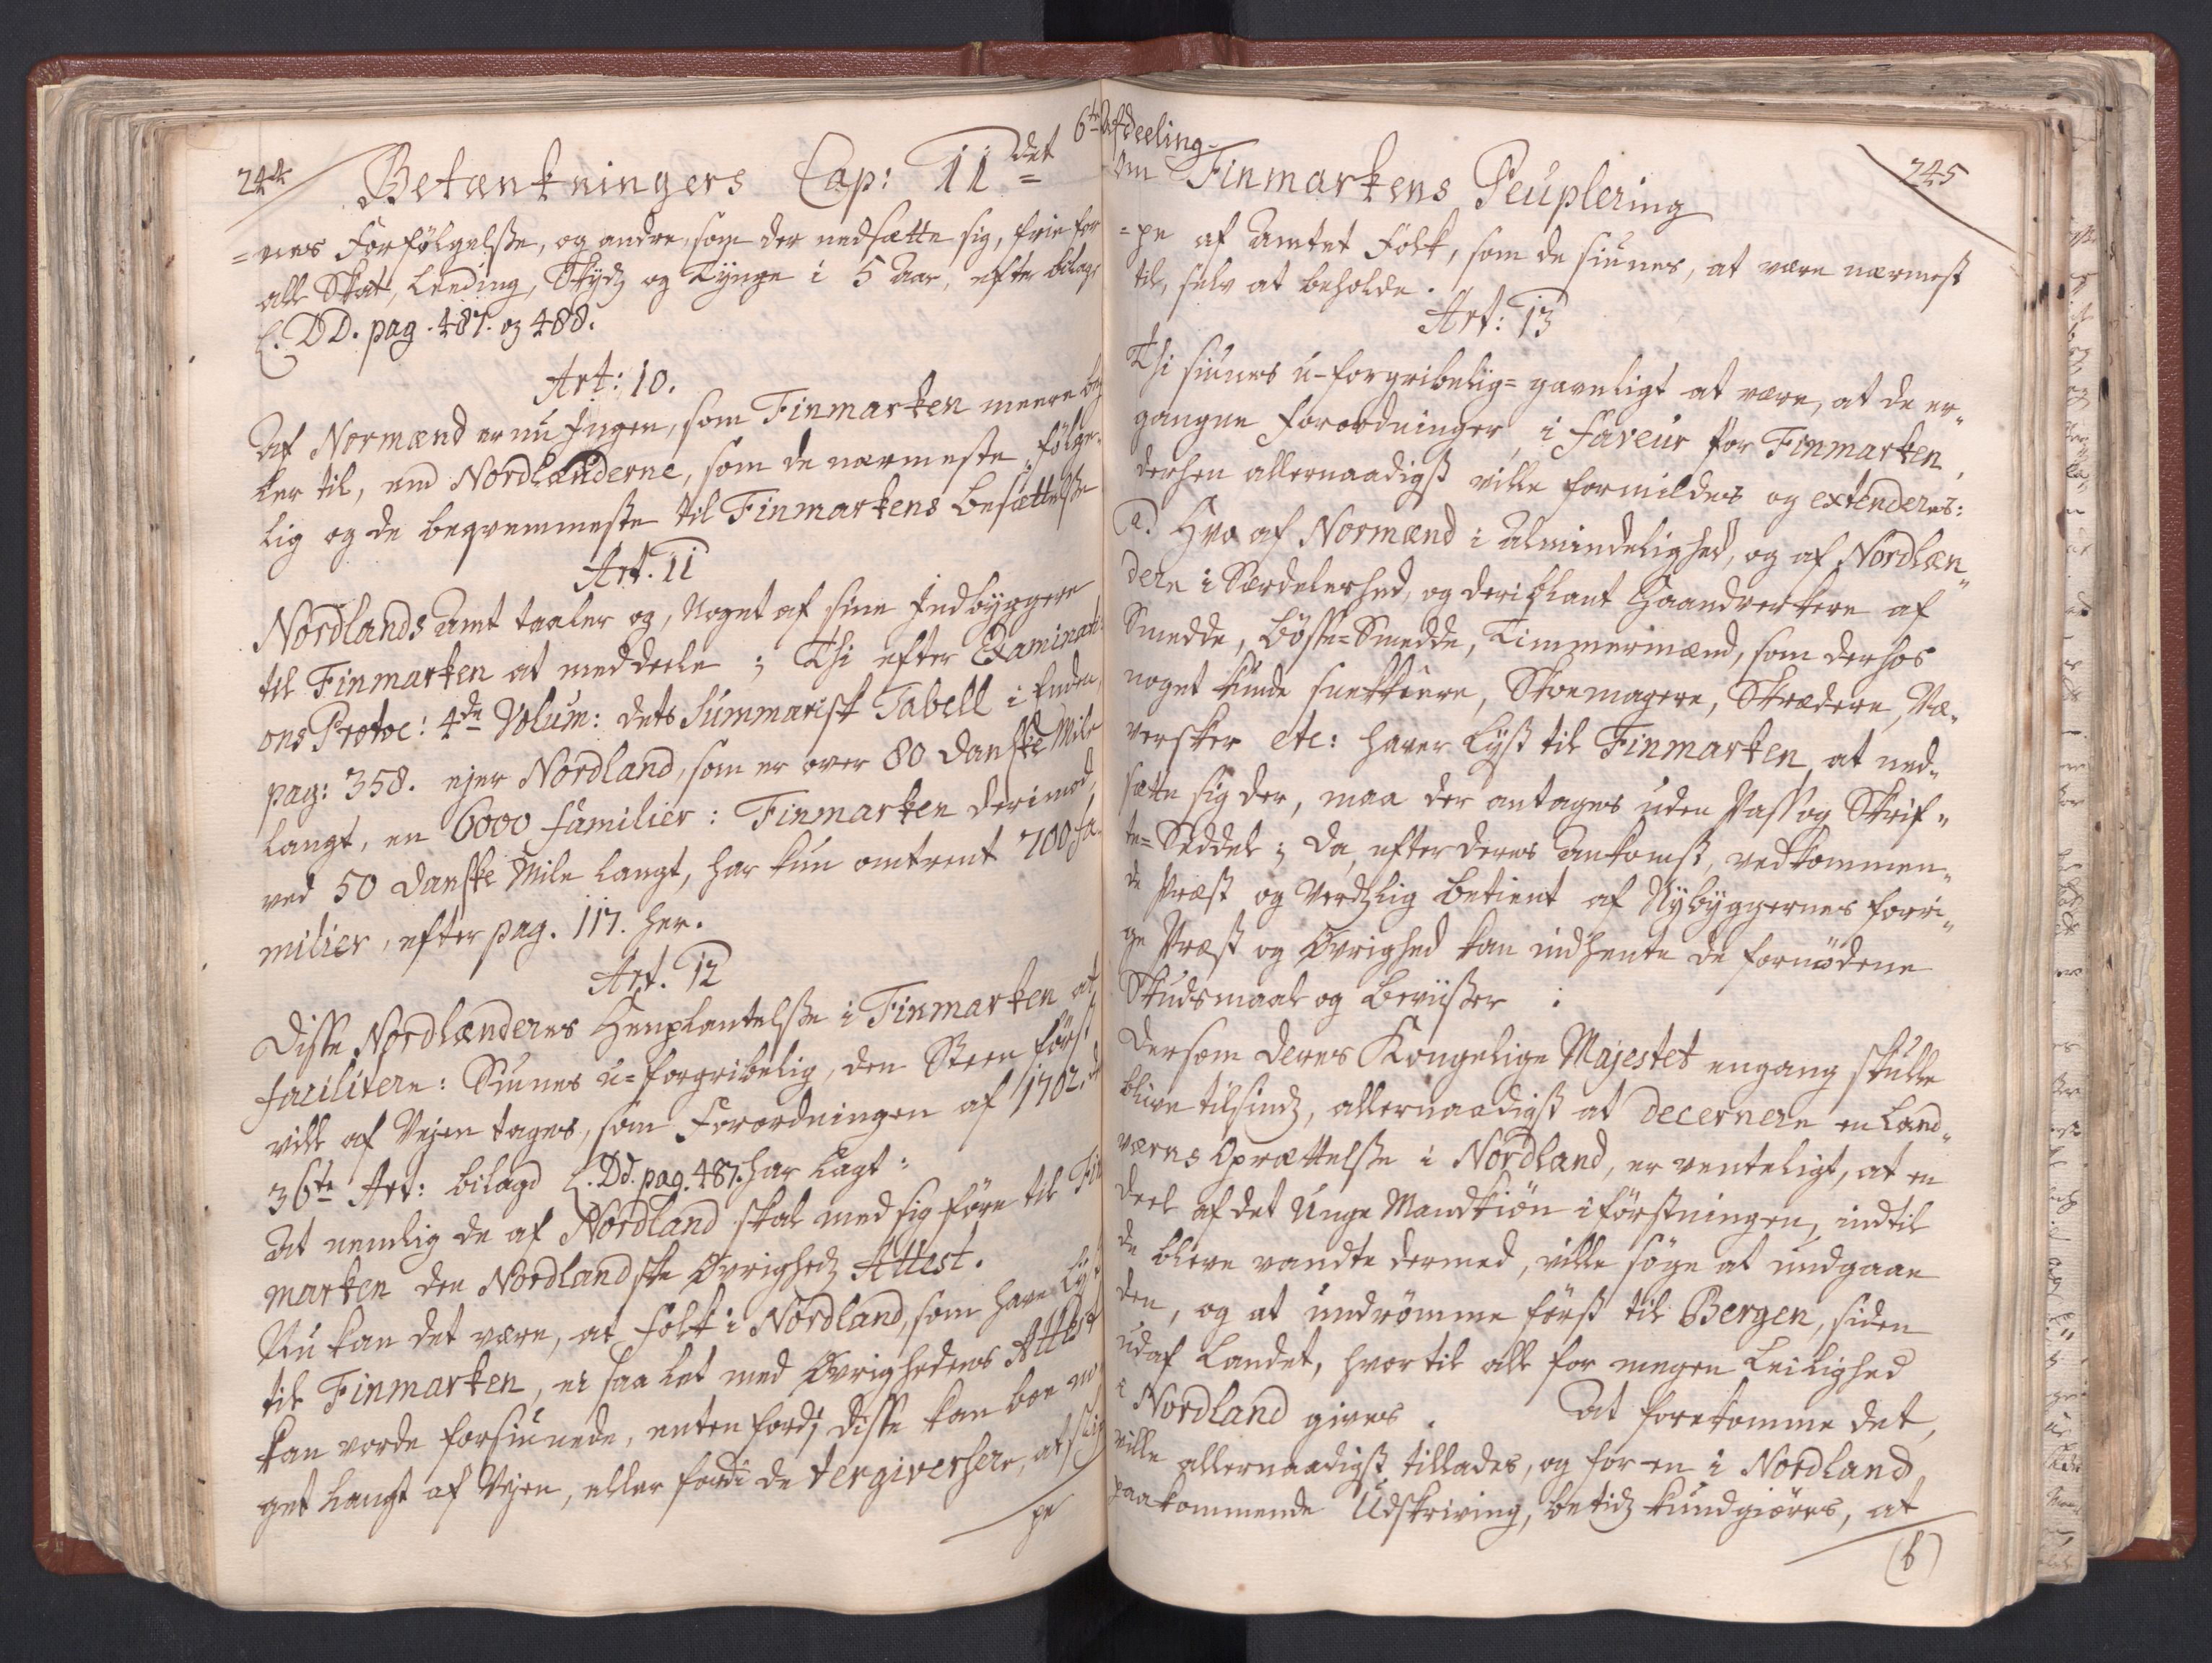 244
Betænkningers Cap: 11det
=nes Forfølgelsse, og andre, som der nedsætte sig, frie for
all Skat, Leeding, Skydz og Tynge i 5 Aar, efter bilag
L. DD. pag. 487. og 488.
Art: 10.
Af Normænd er nu Ingen, som Finmarken meere
ker til, end Nordlænderne, som de nærmeste, følge-
lig og de beqvemmeste til Finmarkens Besættelsse
Art. 11
Nordlands Amt taaler og, Noget af sine Indbyggere
til Finmarken at meddeele ; Thi efter Examinati-
ons Protoc: 4de Volum: dets Summarisk Tabell i Enden,
pag: 358. ejer Nordland, som er over 80 danske Mile
langt, en 6000 familier : Finmarken derimod,
ved 50 danske Mile langt, har kun omtrent 700 fa-
milier, efter pag. 117. her.
Art. 12
Disse Nordlænderes Henplantelsse i Finmarken at
facilitere: Siunes u=forgribelig, den Steen først
ville af Vejen tages, som Forordningen af 1702. d
36te Art: bilagd L. Dd. pag. 487. har lagt:
At nemlig de af Nordland skal med sig føre til Fin
marken den Nordlandske Øvrigheds Attest.
Nu kan det være, at folk i Nordland, som have Lyst
til Finmarken, ei saa let med Øvrighedens Attest
kan vorde forsiunede, enten fordi disse kan boe no
get langt af Vejen, eller fordi de tergiversere, at slig
pe
6te Afdeeling
Om Finmarkens Peuplering
245
=pe af Amtet Folk, som de siunes, at være nærmest
til, selv at beholde.
Art: 13
Thi siunes u-forgribelig= gavnligt at være, at de er-
gangne forordninger, i faveur for Finmarken,
derhen allernaadigst ville formildes og extenderes:
a. Hvo af Normænd i Almindelighed, og af Nordlæn-
dere i Særdeleshed, og deriblant Haandverkere af
Smedde, Bøsse=Smedde, Timmermænd, som derhos
noget kunde snekkere, Skoemagere, Skrædere, Væ-
versker etc: haver Lyst til Finmarken, at ned-
sætte sig der, maa der antages uden Pass og Skrif-
te=Seddel; da, efter deres Ankomst, vedkommen-
de Præst og Verdslig Betient af Nybyggernes forri-
ge Præst og Øvrighed kan indhente de fornødene
Skudsmaal og Beviisser :
Dersom deres Kongelige Majestet engang skulle
blive tilsindz, allernaadigst at decernere en Land-
værns Oprættelsse i Nordland, er venteligt, at en
deel af det Unge Mandkiøn i førstningen, indtil
de bleve vandte dermed, ville søge at undgaae
den, og at undrømme først til Bergen, siden
udaf Landet, hvortil all for megen Leilighed
i Nordland gives. At forekomme det,
ville allernaadigst tillades, og for en i Nordland
paakommende Udskriving, betids kundgiøres, at
(b)